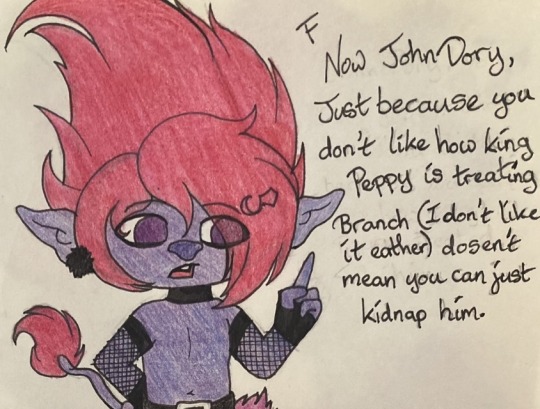 F
Now John Dory,
Just because you
don't like how king
Peppy is treating
Branch (I don't like
it eather) dosen't
mean you can just
kidnap him.